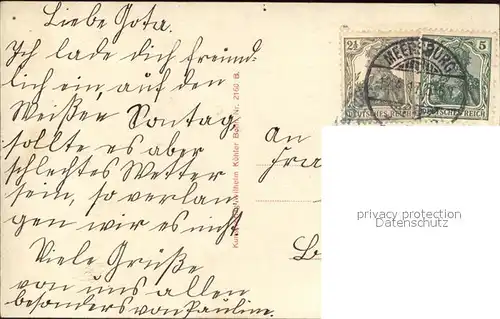 Liebe Gota.
Ich lade dich freund-
lich ein, auf den
Weißen Sonntag
sollte es aber
schlechtes Wetter
sein, so verlan-
gen wir es nicht
Viele Grüße
von uns allen
besonders von Pauline.
2½
5
MEERSBURG
DEUTSCHES REICH
DEUTSCHES REICH
An
Fra
Wilhelm Künler Bonn, Nr. 2160 B.
privacy protection
Datenschutz